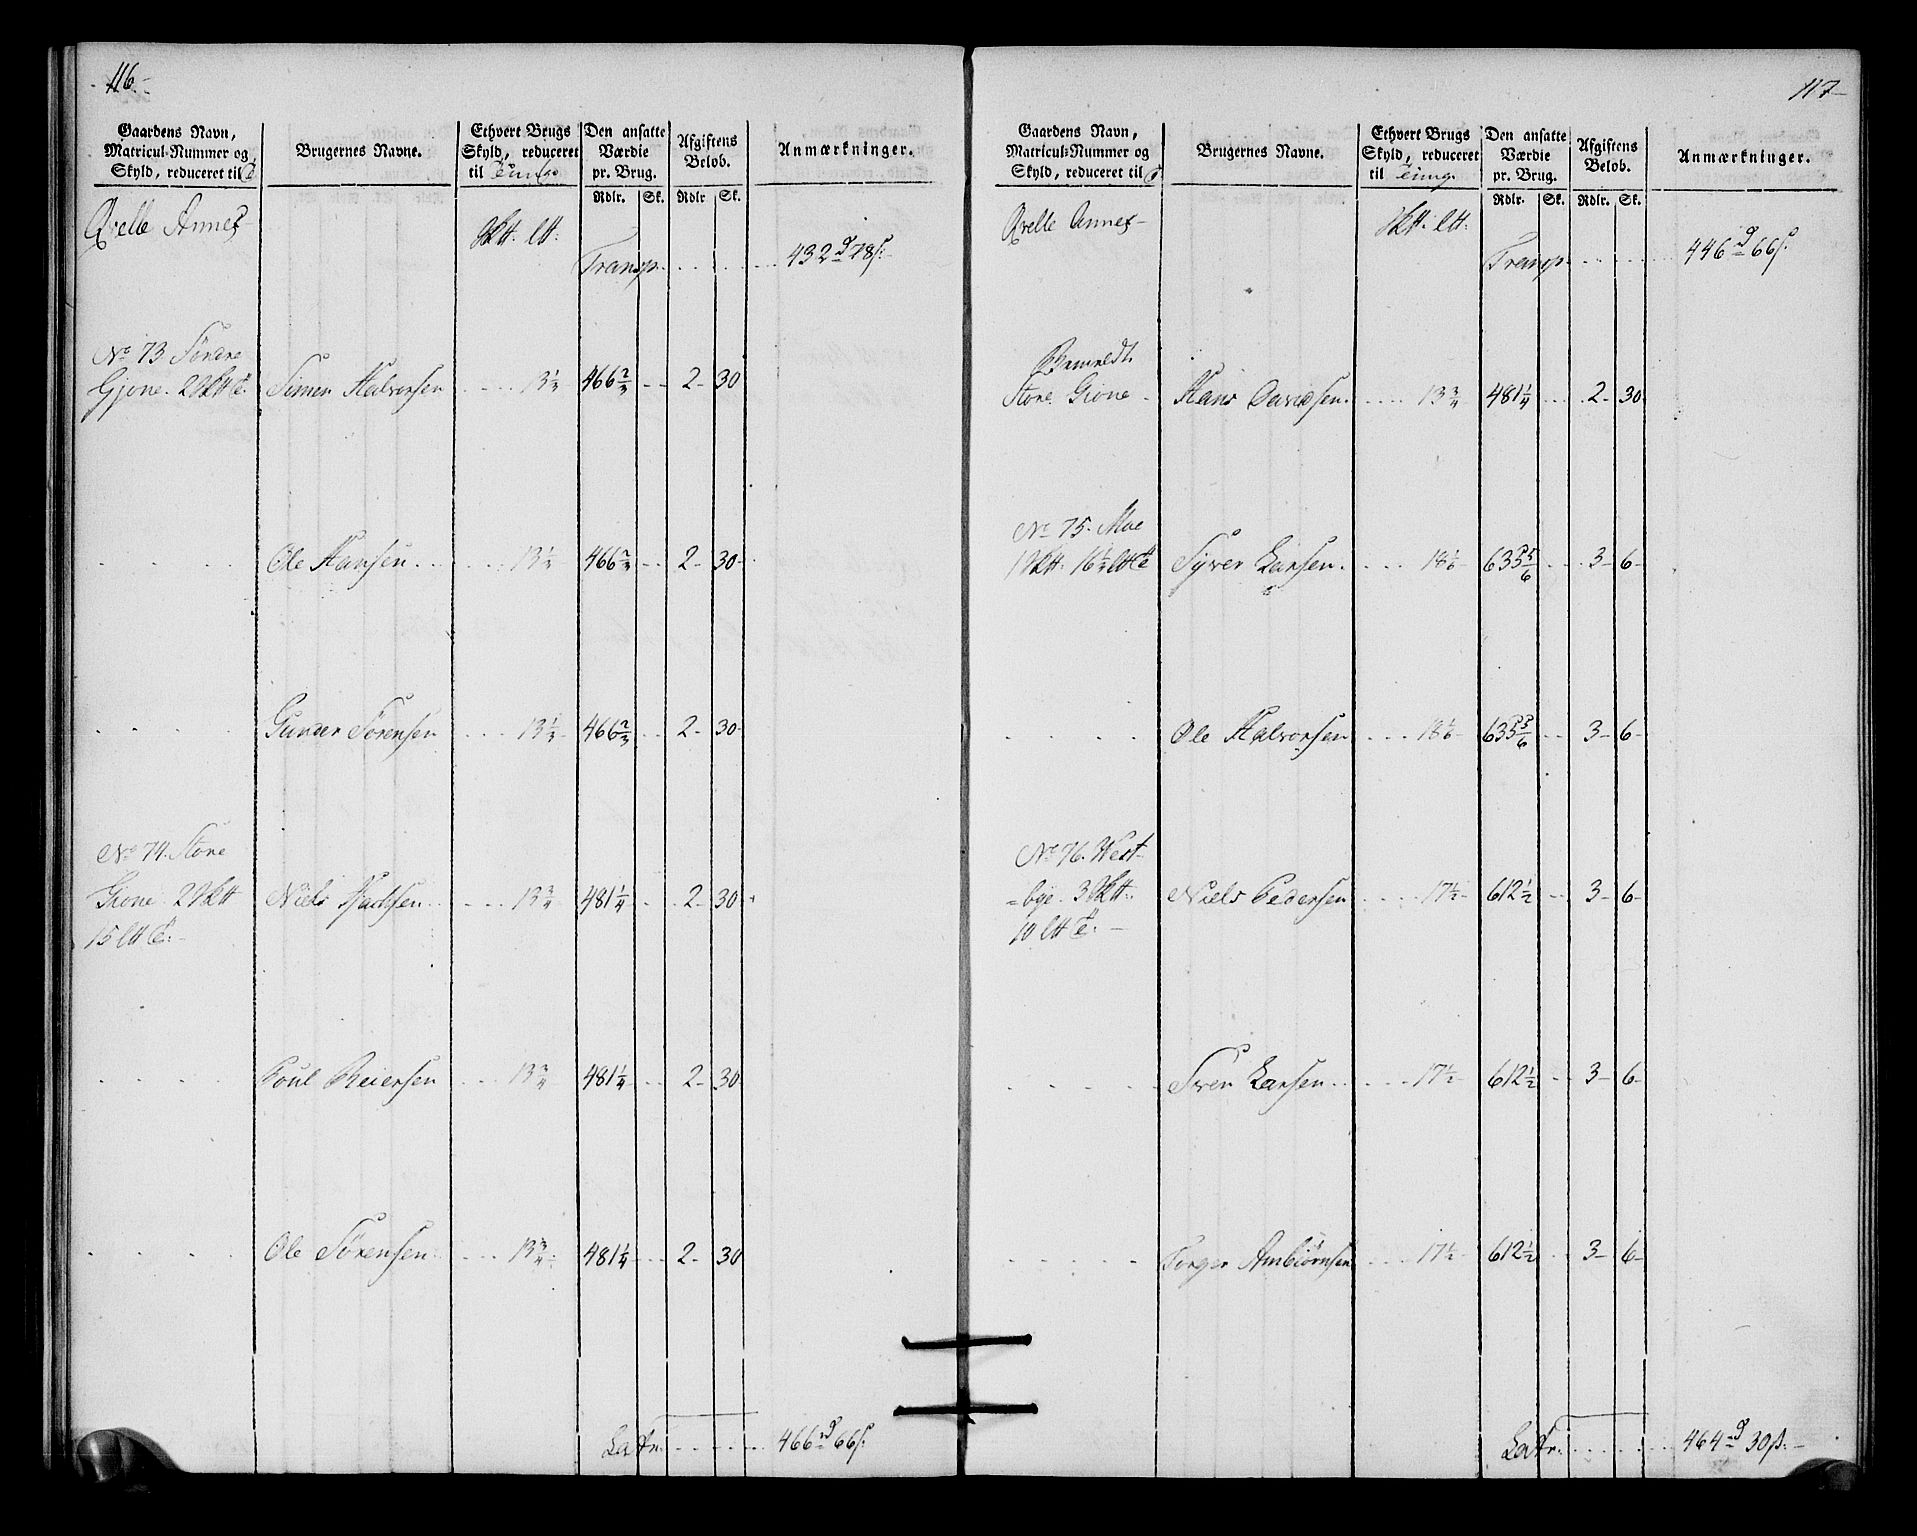 116.
Gaardens Navn,
Matricul-Nummer og
Skyld, reduceret til
Brugernes Navne.
Ethvert Brugs
Skyld, reduceret
til Tunge
Den ansatte
Værdie
pr. Brug.
Rdlr. Sk.
Afgiftens
Beløb.
Rdlr Sk.
Anmærkninger.
Qvelle Annex
Transp. 432 78
No 73 Søndre
Gjone. 2 Simen Halvorsen 13 1/3 466 2/3 2- 30
Ole Hansen 13 1/3 466 2/3 2- 30-
Gunder Sørensen 13 1/3 466 2/3 2- 30-
No 74. Store
Gione. 2 Niels 13 3/4 481 1/4 2- 30
15
Poul Reiersen 13 3/4 481 1/4 2- 30
Ole Sørensen 13 3/4 481 1/4 2- 30
Latr. 466 66
117
Gaardens Navn,
Matricul-Nummer og
Skyld, reduceret til
Brugernes Navne.
Ethvert Brugs
Skyld, reduceret
til Tung.
Den ansatte
Værdie
pr. Brug.
Rdlr. Sk.
Afgiftens
Beløb.
Rdlr. Sk.
Anmærkninger.
Qvelle Annex
Transp. 446 66
Store Gione Hans Davidsen. 13 3/4 481 1/4 2- 30
No 75. Moe
1 16 1/3 Syver Larsen. 18 1/6 635 5/6 3- 6-
Ole Halvorsen 18 1/6 635 5/6 3- 6-
No 76. West-
=bye. 3 Niels Pedersen 17 1/2 612 1/2 3- 6-
10
Sven Larsen 17 1/2 612 1/2 3- 6-
Torger Ambiörnsen 17 1/2 612 1/2 3- 6-
Latr. 464 30